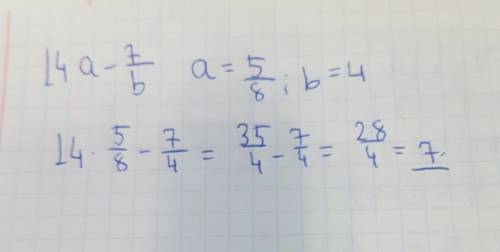 14a - 7/b   a = 5/8 ; b = 4
14 · 5/8 - 7/4 = 35/4 - 7/4 = 28/4 = 7.